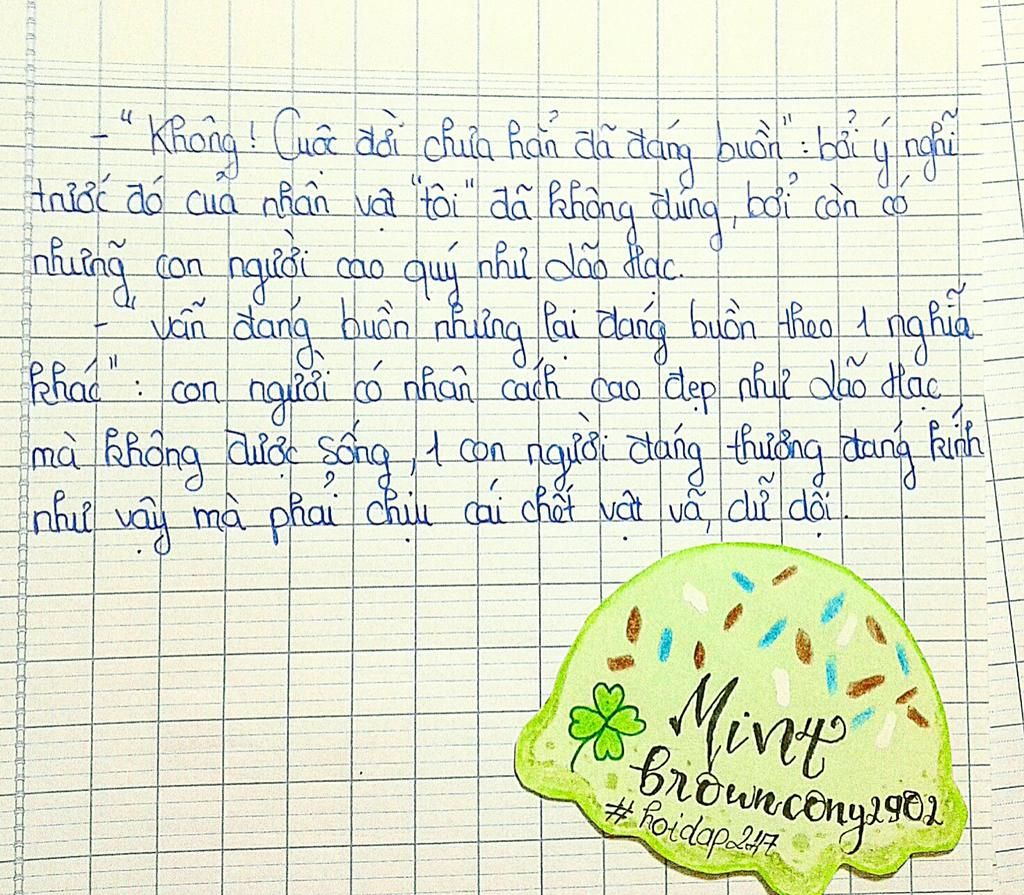 - "Không! Cuộc đời chưa hẳn đã đáng buồn": bởi ý nghĩ
trước đó của nhân vật "tôi" đã không đúng, bởi còn có
những con người cao quý như lão Hạc.
- "vẫn đáng buồn nhưng lại đáng buồn theo 1 nghĩa
khác": con người có nhân cách cao đẹp như lão Hạc
mà không được sống, 1 con người đáng thương đáng kính
như vậy mà phải chịu cái chết vật vã, dữ dội.
Mint
browncony2902
#hoidap247